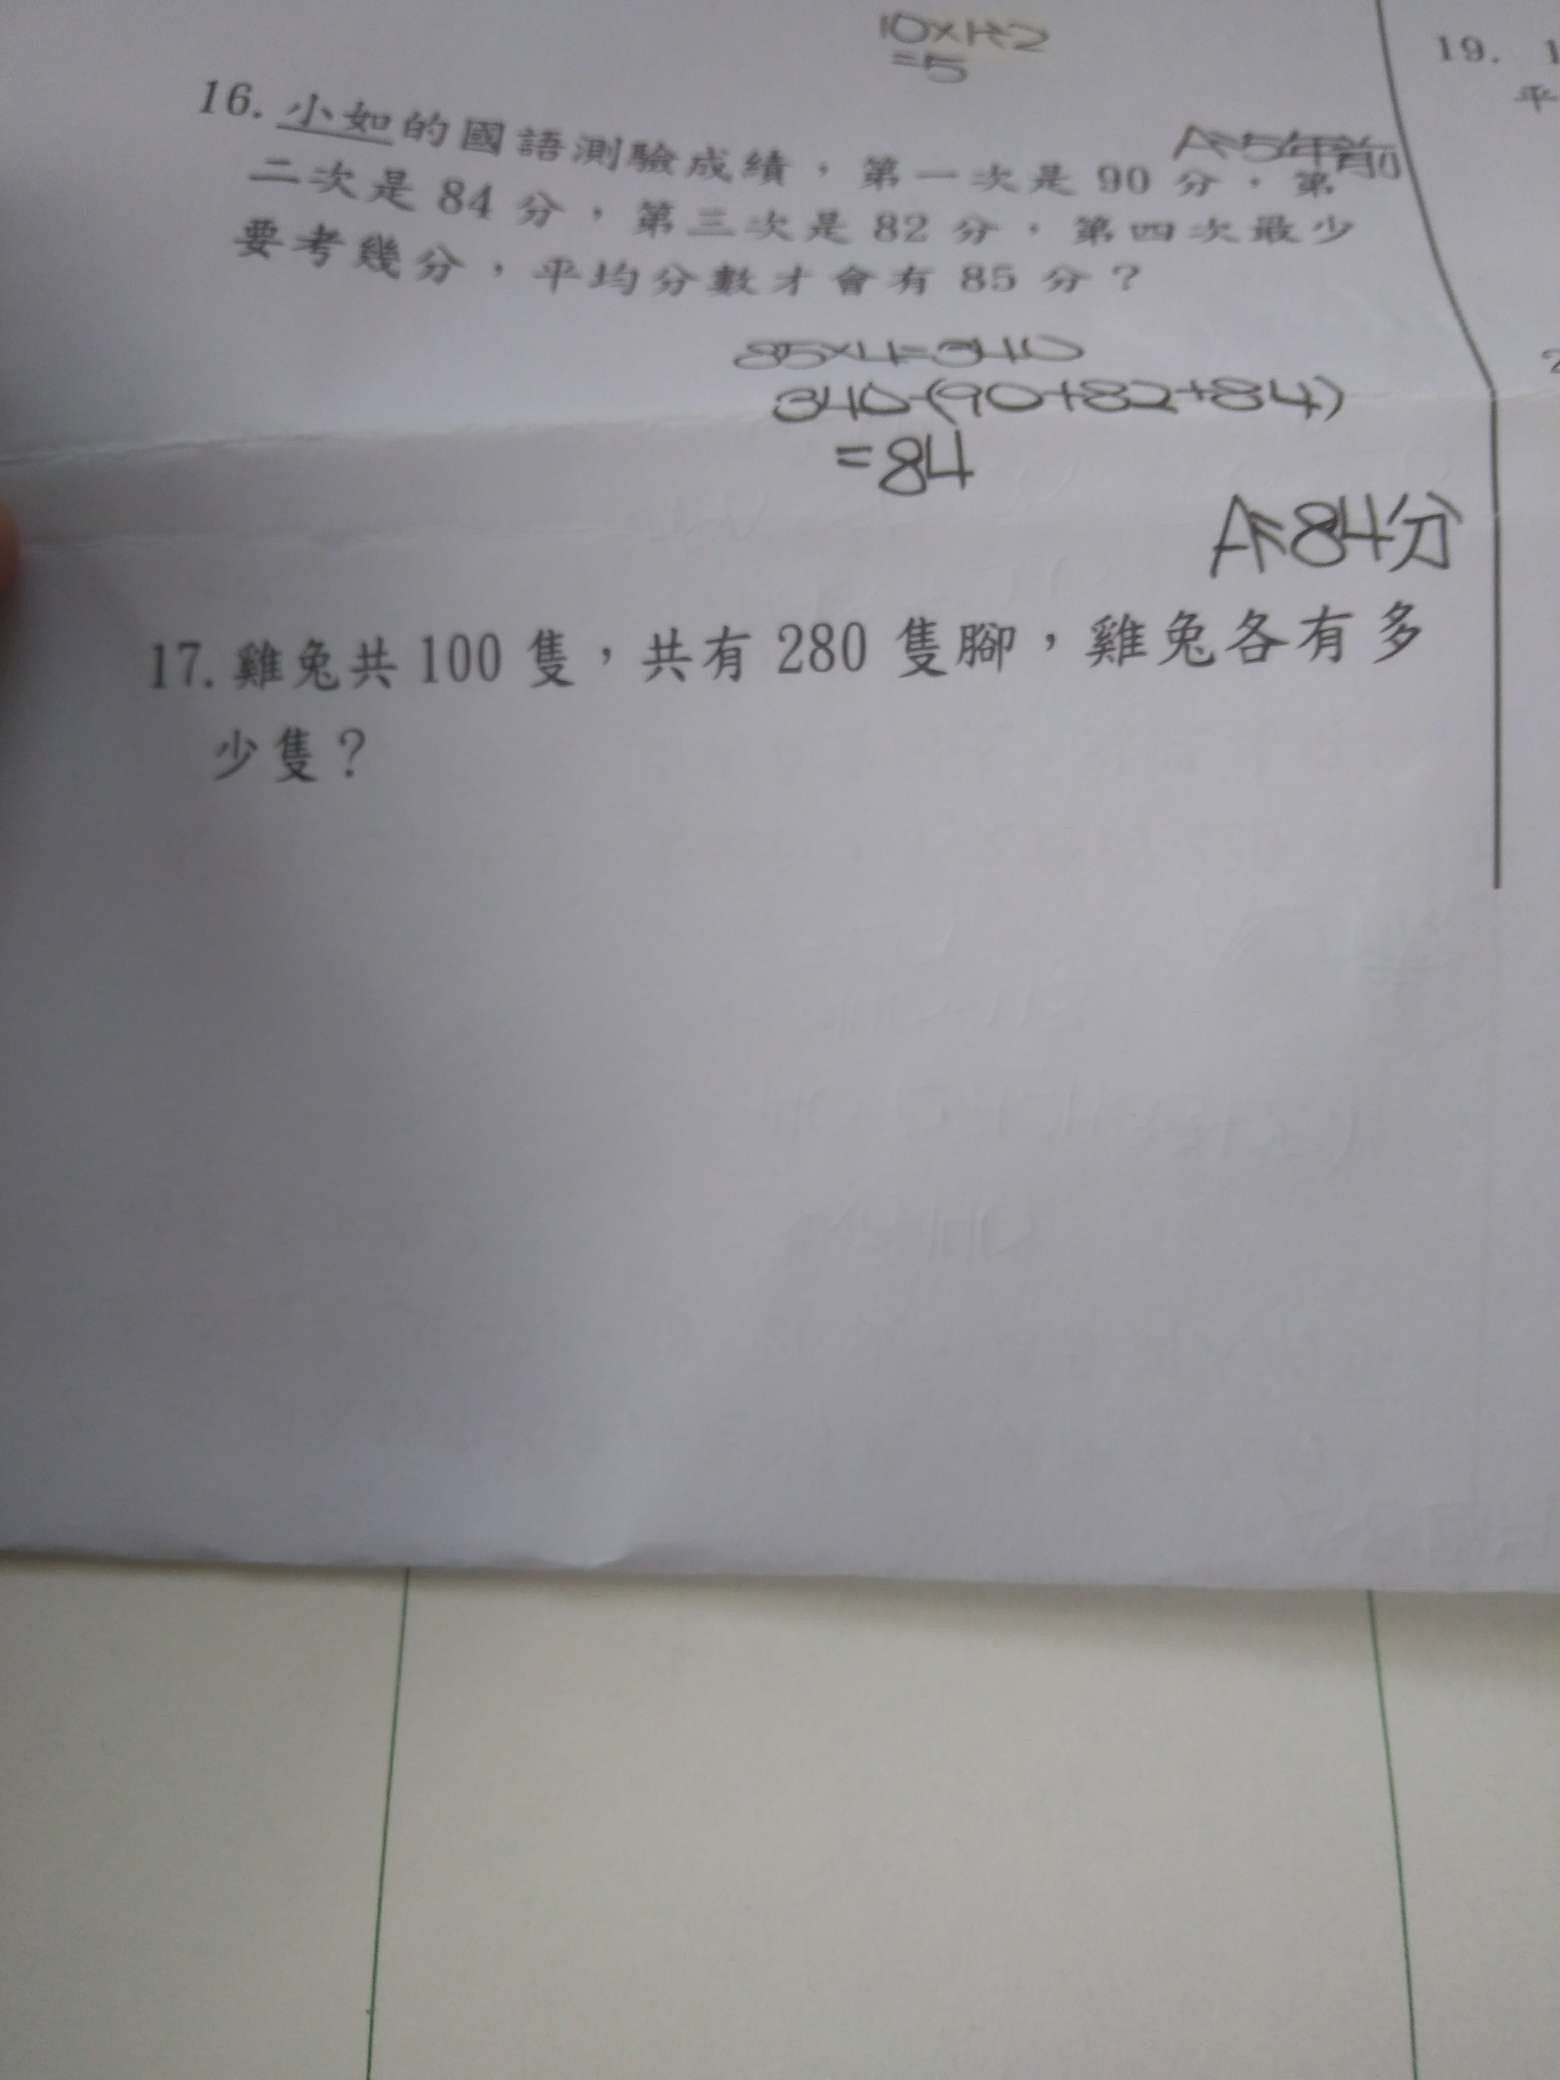 10×1÷2
=5
19. 1
平
16. 小如的國語測驗成績，第一次是 90 分，第
A:5年前
二次是 84 分，第三次是 82 分，第四次最少
要考幾分，平均分數才會有 85 分？
85×4=340
340-(90+82+84)
=84
A:84分
17. 雞兔共 100 隻，共有 280 隻腳，雞兔各有多
少隻？